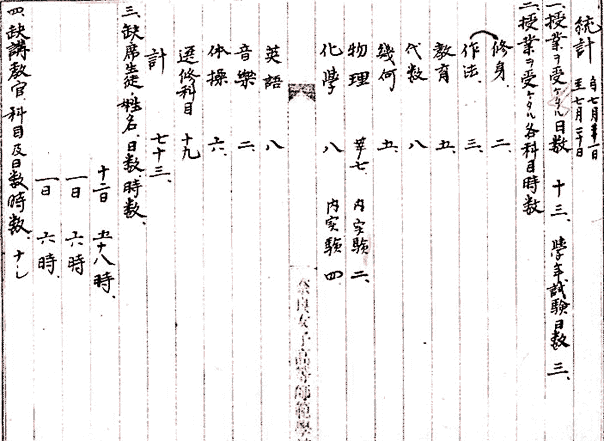 統計 自七月一日 至七月二十日
一、授業ヲ受ケタル日数 十三、學年試験日数 三、
二、授業ヲ受ケタル各科目時数
修身、二、
作法、三、
教育 五、
代数 八
幾何 五、
物理 七、内実験 二、
化學 八 内実験 四、
奈良女子高等師範學
英語 八
音樂 二、
体操 六、
選修科目 十九
計 七十三、
三、缺席生徒ノ姓名、日数、時数、
十二日 五十八時、
一日 六時
一日 六時
四、缺講教官、科目及日数時数、ナシ